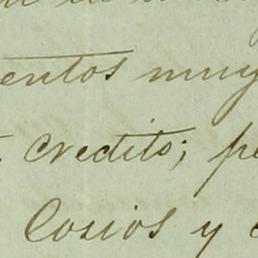 entos muy
credito; pe
Cosios y